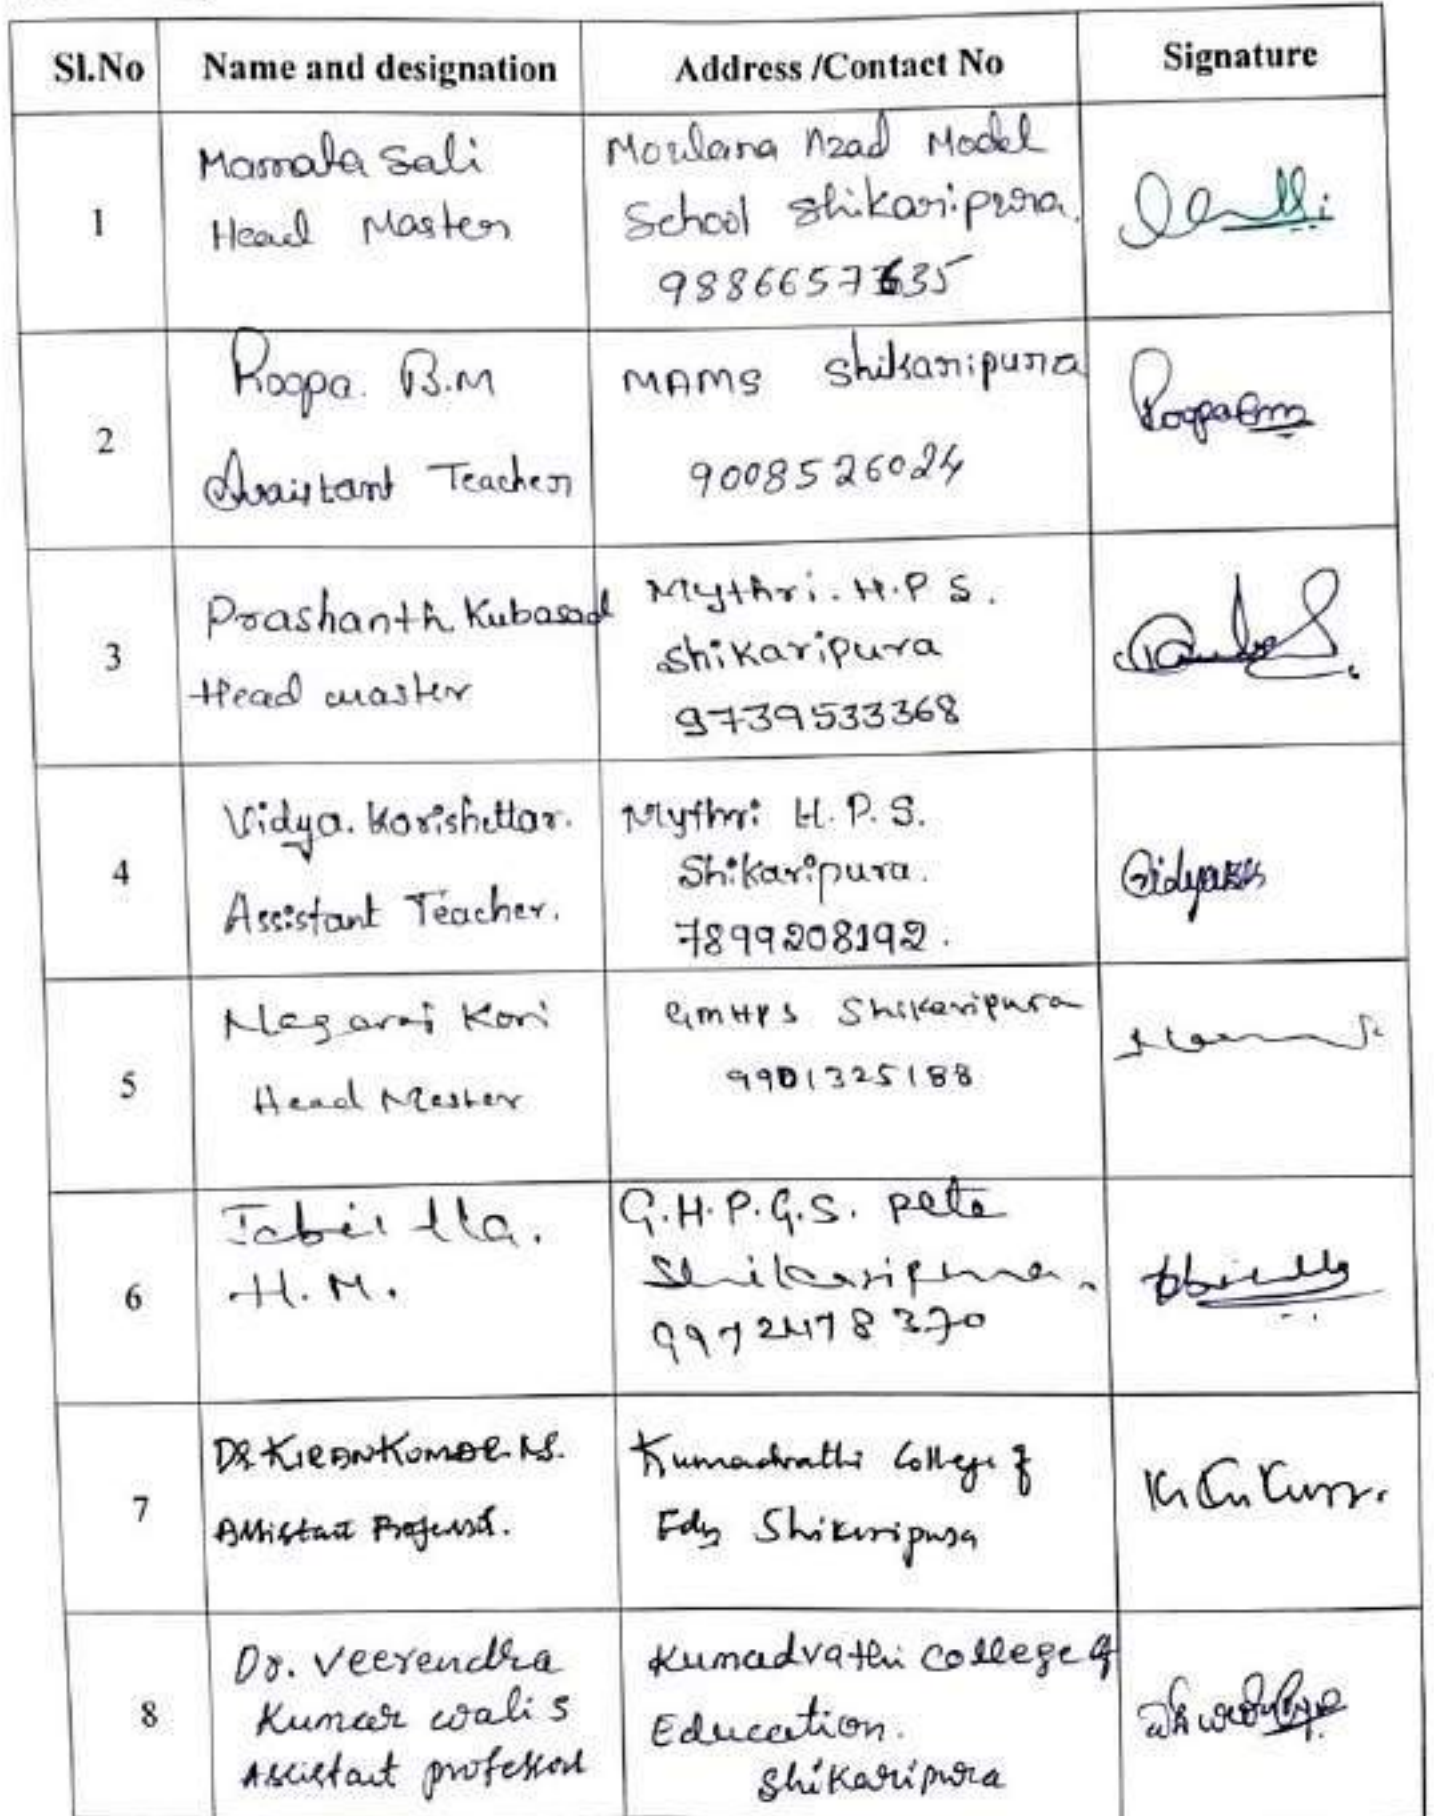 Sl.No Name and designation Address /Contact No Signature
1
Mamata Sali
Head Master
Moulana Azad Model
School Shikaripura.
9886657635
2
Roopa. B.M
Assistant Teacher
MAMS Shikaripura
9008526024
Roopa Bm
3
Prashanth Kubasad
Head master
Mythri. H.P S.
Shikaripura
9739533368
4
Vidya. Korishettar.
Assistant Teacher.
Mythri H.P.S.
Shikaripura.
7899208192.
Vidya
5
Nagaraj Kori
Head Master
GMHPS Shikaripura
9901325188
6
H.M.
G.H.P.G.S. pete
Shikaripura.
9972478370
7
Dr KIRAN KUMAR
Assistant Professor.
Kumadvathi College of
Edn Shikaripura
8
Dr. Veerendra
Kumar wali S
Assistant professor
Kumadvathi College of
Education.
Shikaripura